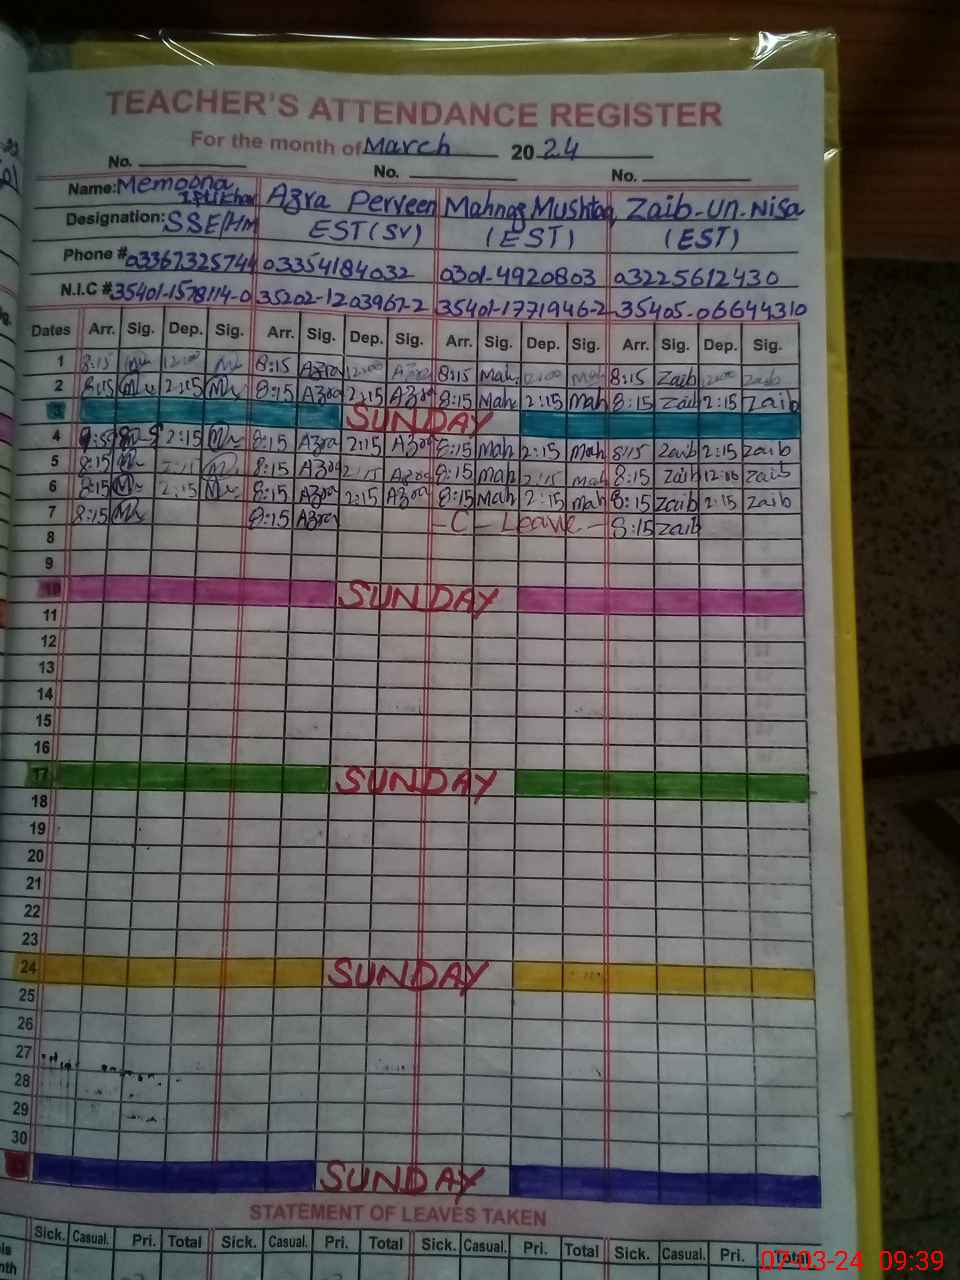 TEACHER'S ATTENDANCE REGISTER
For the month of March 2024
No. No. No.
Name: Memoona Iftikhar Azra Perveen Mahnaz Mushtaq Zaib-Un-Nisa
Designation: SSE/Hm EST(SV) (EST) (EST)
Phone # 03367325744 03354184032 0301-4920803 03225612430
N.I.C # 35401-1578114-0 35202-1203967-2 35401-1771946-2 35405-06644310
Dates Arr. Sig. Dep. Sig. Arr. Sig. Dep. Sig. Arr. Sig. Dep. Sig. Arr. Sig. Dep. Sig.
1 8:15 12:00 8:15 Azra 12:00 Azra 8:15 Mah 12:00 Mah 8:15 Zaib 12:00 Zaib
2 8:15 2:15 8:15 Azra 2:15 Azra 8:15 Mah 2:15 Mah 8:15 Zaib 2:15 Zaib
3 SUNDAY
4 2:15 8:15 Azra 2:15 Azra 8:15 Mah 2:15 Mah 8:15 Zaib 2:15 Zaib
5 8:15 2:15 8:15 Azra 2:15 Azra 8:15 Mah 2:15 Mah 8:15 Zaib 12:00 Zaib
6 8:15 2:15 8:15 Azra 2:15 Azra 8:15 Mah 2:15 Mah 8:15 Zaib 2:15 Zaib
7 8:15 8:15 Azra - C - Leave - 8:15 Zaib
8
9
10 SUNDAY
11
12
13
14
15
16
17 SUNDAY
18
19
20
21
22
23
24 SUNDAY
25
26
27
28
29
30
SUNDAY
STATEMENT OF LEAVES TAKEN
Sick. Casual. Pri. Total Sick. Casual. Pri. Total Sick. Casual. Pri. Total Sick. Casual. Pri. Total
07-03-24 09:39